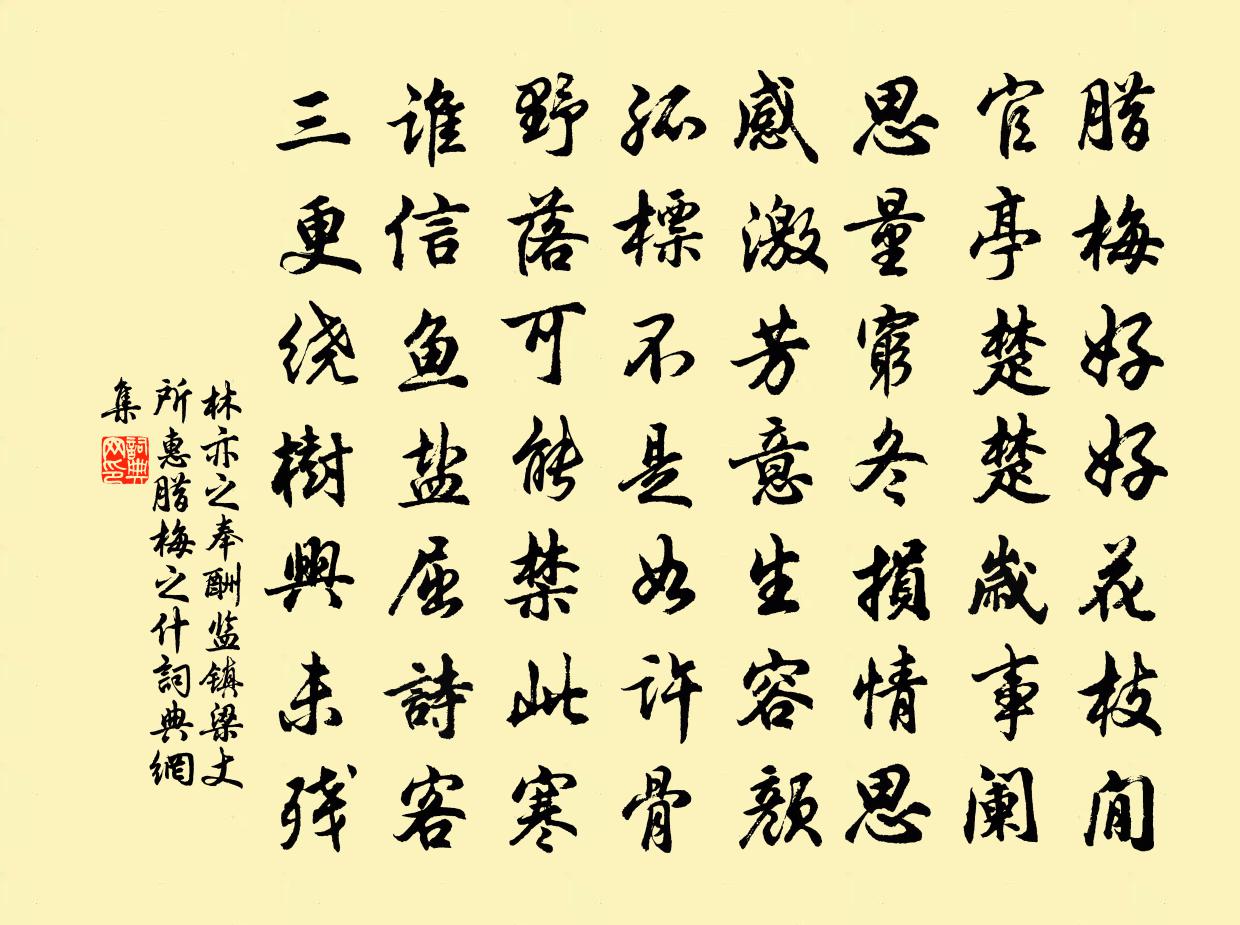 腊梅好好花枝閒
官亭楚楚歲事阑
思量窮冬損情思
感激芳意生容顏
孤標不是如许骨
野落可能禁此寒
谁信鱼盐屈詩客
三更绕樹興未残
林亦之奉酬监镇梁丈
所惠腊梅之什詞典網
集
詞典網印